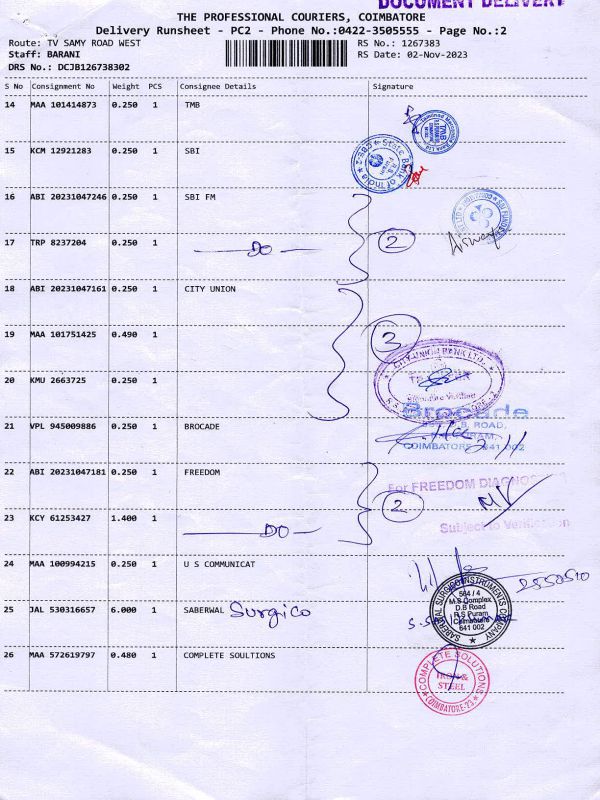 DOCUMENT DELIVERY
THE PROFESSIONAL COURIERS, COIMBATORE
Delivery Runsheet - PC2 - Phone No.:0422-3505555 - Page No.:2
Route: TV SAMY ROAD WEST RS No.: 1267383
Staff: BARANI RS Date: 02-Nov-2023
DRS No.: DCJB126738302
S No Consignment No Weight PCS Consignee Details Signature
14 MAA 101414873 0.250 1 TMB
15 KCM 12921283 0.250 1 SBI
State Bank of India
16 ABI 20231047246 0.250 1 SBI FM
2
17 TRP 8237204 0.250 1 DO
18 ABI 20231047161 0.250 1 CITY UNION
19 MAA 101751425 0.490 1
3
CITY UNION BANK LTD.
20 KMU 2663725 0.250 1
Brocade
21 VPL 945009886 0.250 1 BROCADE
B. ROAD,
COIMBATORE - 641 002
22 ABI 20231047181 0.250 1 FREEDOM
For FREEDOM
2
23 KCY 61253427 1.400 1 DO
Subject to Verification
24 MAA 100994215 0.250 1 U S COMMUNICAT
25 JAL 530316657 6.000 1 SABERWAL Surgico
SABERWAL SURGICO INSTRUMENTS COMPANY
564 / 4
M.S Complex
D.B Road
R.S Puram
Coimbatore
641 002
26 MAA 572619797 0.480 1 COMPLETE SOULTIONS
COMPLETE SOLUTIONS
IRON &
STEEL
COIMBATORE-23